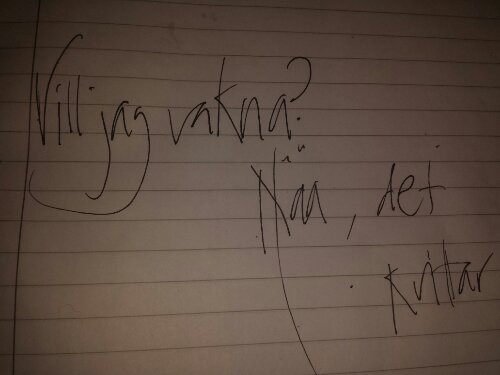 Vill jag vakna?
Nää, det
kvittar